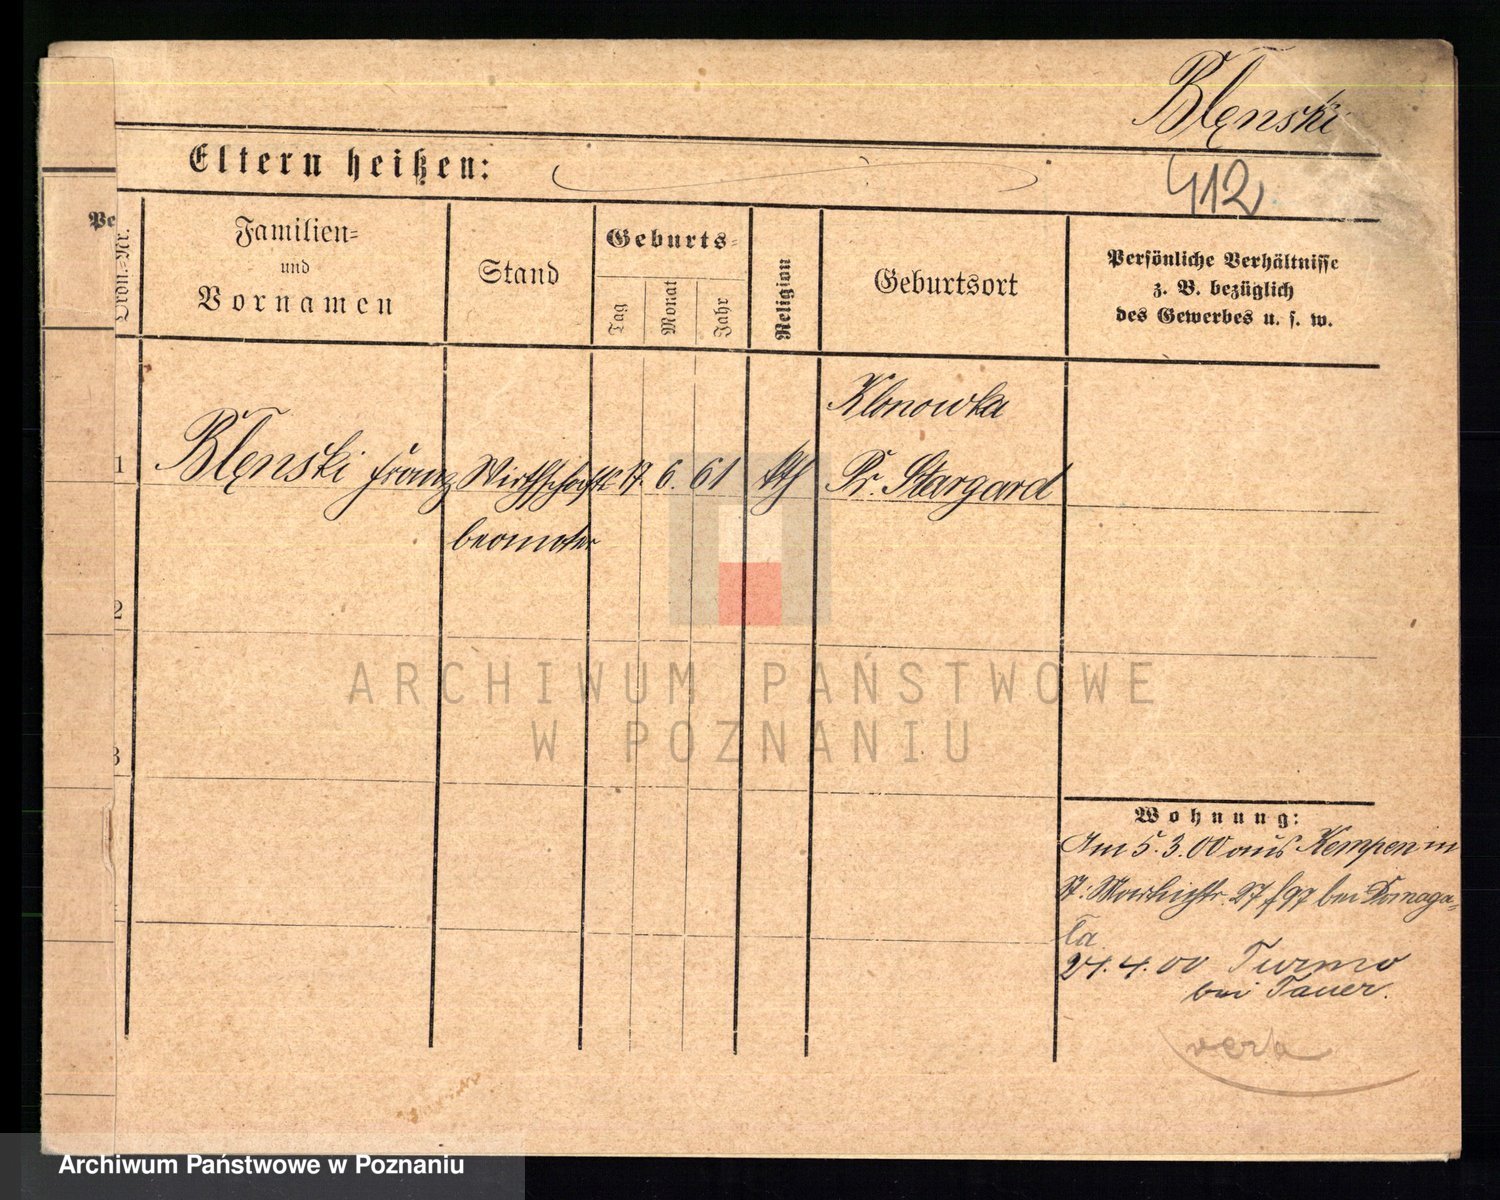 Blęnski
412
Eltern heißen:
Pe
Ordn.-Nr.
Familien-
und
Vornamen
Stand
Geburts-
Tag
Monat
Jahr
Religion
Geburtsort
Persönliche Verhältnisse
z. B. bezüglich
des Gewerbes u. s. w.
Klonowka
1 Blęnski Franz Wirthschafts 17. 6. 61 kth Pr. Stargard
beamter
2
3
ARCHIWUM PAŃSTWOWE
W POZNANIU
Wohnung:
Am 5.3.00 aus Kempen in
St. 27/97 bei Domaga-
la
21.4.00 Turmo
bei Tauer.
Archiwum Państwowe w Poznaniu